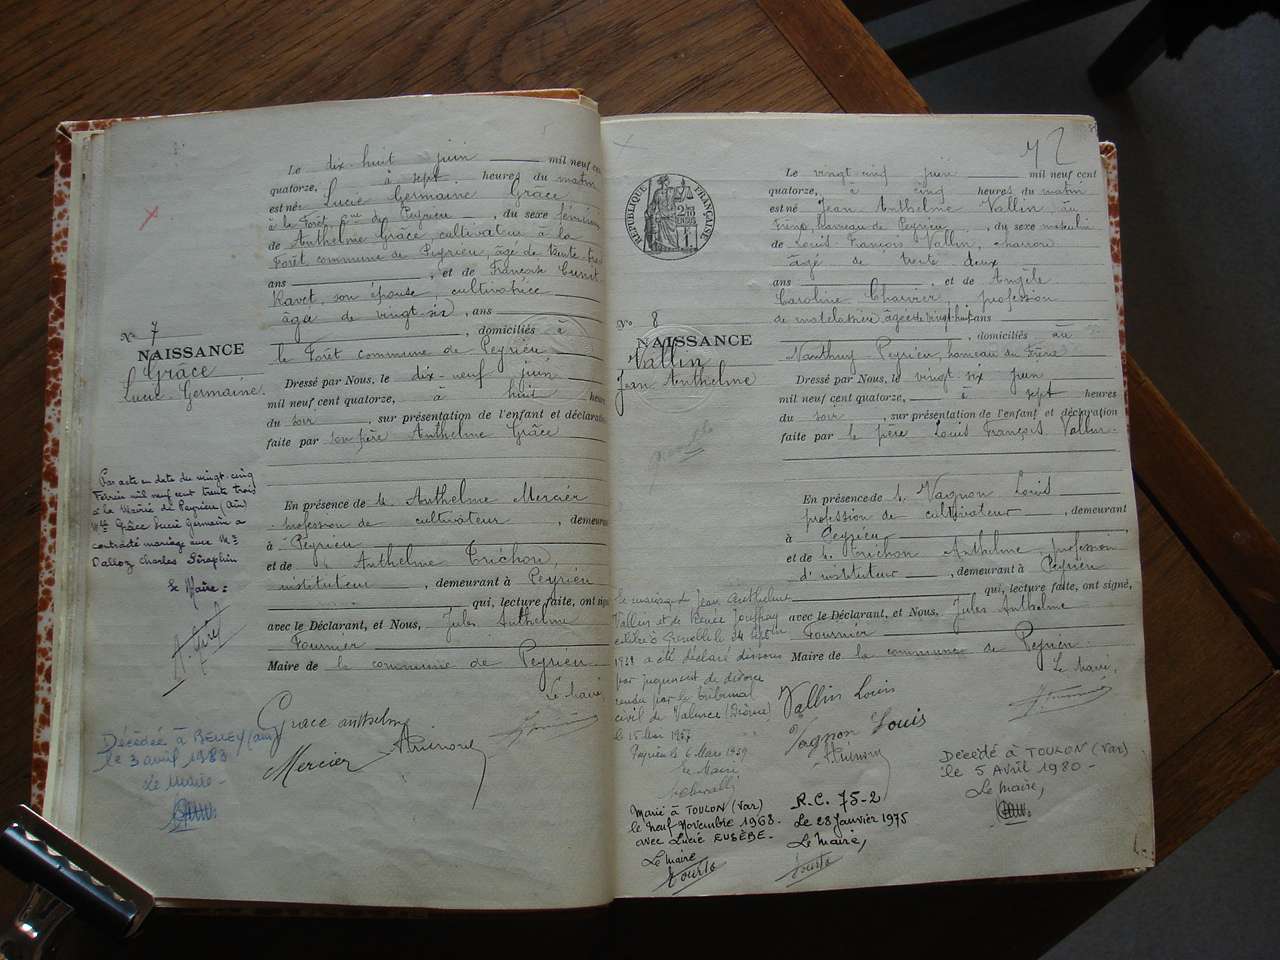 Le dix-huit juin mil neuf cent
quatorze, à sept heures du matin
est né: Lucie Germaine Grâce
à la Forêt cne de Peyrieu, du sexe féminin
de Anthelme Grâce cultivateur à la
Forêt commune de Peyrieu, âgé de trente-trois
ans, et de Françoise
Ravet, son épouse cultivatrice
âgée de vingt-six, ans
, domiciliés à
la Forêt commune de Peyrieu
Dressé par Nous, le dix-neuf juin
mil neuf cent quatorze, à huit heures
du soir, sur présentation de l'enfant et déclaration
faite par son père Anthelme Grâce
En présence de M. Anthelme Mercier
profession de cultivateur, demeurant
à Peyrieu
et de M. Anthelme Tréchon,
instituteur, demeurant à Peyrieu
qui, lecture faite, ont signé
avec le Déclarant, et Nous, Jules Anthelme
Fournier
Maire de la commune de Peyrieu
Le Maire,
Grace anthelme
Mercier
No 7
NAISSANCE
Grâce
Lucie Germaine.
Par acte en date du vingt-cinq
Février mil neuf cent trente trois
à la Mairie de Peyrieu (Ain)
Mlle Grâce Lucie Germain a
contracté mariage avec Mr
Dalloz Charles Séraphin
Le Maire:
Décédée à BELLEY (ain)
le 3 avril 1983
Le Maire
12
RÉPUBLIQUE FRANÇAISE
Le vingt-cinq juin mil neuf cent
quatorze, à cinq heures du matin
est né Jean Anthelme Vallin, au
hameau de Peyrieu, du sexe masculin
de Louis François Vallin, charron
âgé de trente deux
ans, et de Angèle
Caroline Charvier, profession
de matelassière, âgée de vingt-huit ans
, domiciliés au
Nanthuy Peyrieu, hameau du
Dressé par Nous, le vingt-six juin
mil neuf cent quatorze, à sept heures
du soir, sur présentation de l'enfant et déclaration
faite par le père Louis François Vallin
En présence de M. Vagnon Louis
profession de cultivateur, demeurant
à Peyrieu
et de M. Tréchon Anthelme, profession
d'instituteur, demeurant à Peyrieu
qui, lecture faite, ont signé,
avec le Déclarant, et Nous, Jules Anthelme
Fournier
Maire de la commune de Peyrieu
Le Maire,
Vallin Louis
Vagnon Louis
No 8
NAISSANCE
Vallin
Jean Anthelme
Le mariage de Jean Anthelme
Vallin et de Renée Jouffray
célébré à Grenoble le 24
1938 a été déclaré dissous
par jugement de divorce
rendu par le tribunal
civil de Valence (Drôme)
le 15 Mai 1957
Peyrieu le 6 Mars 1959
Le Maire
Marié à TOULON (Var)
le neuf Novembre 1968
avec Lucie EUSÈBE.
Le Maire
R.C. 75-2
Le 28 Janvier 1975
Le Maire,
Décédé à TOULON (Var)
le 5 Avril 1980
Le Maire,